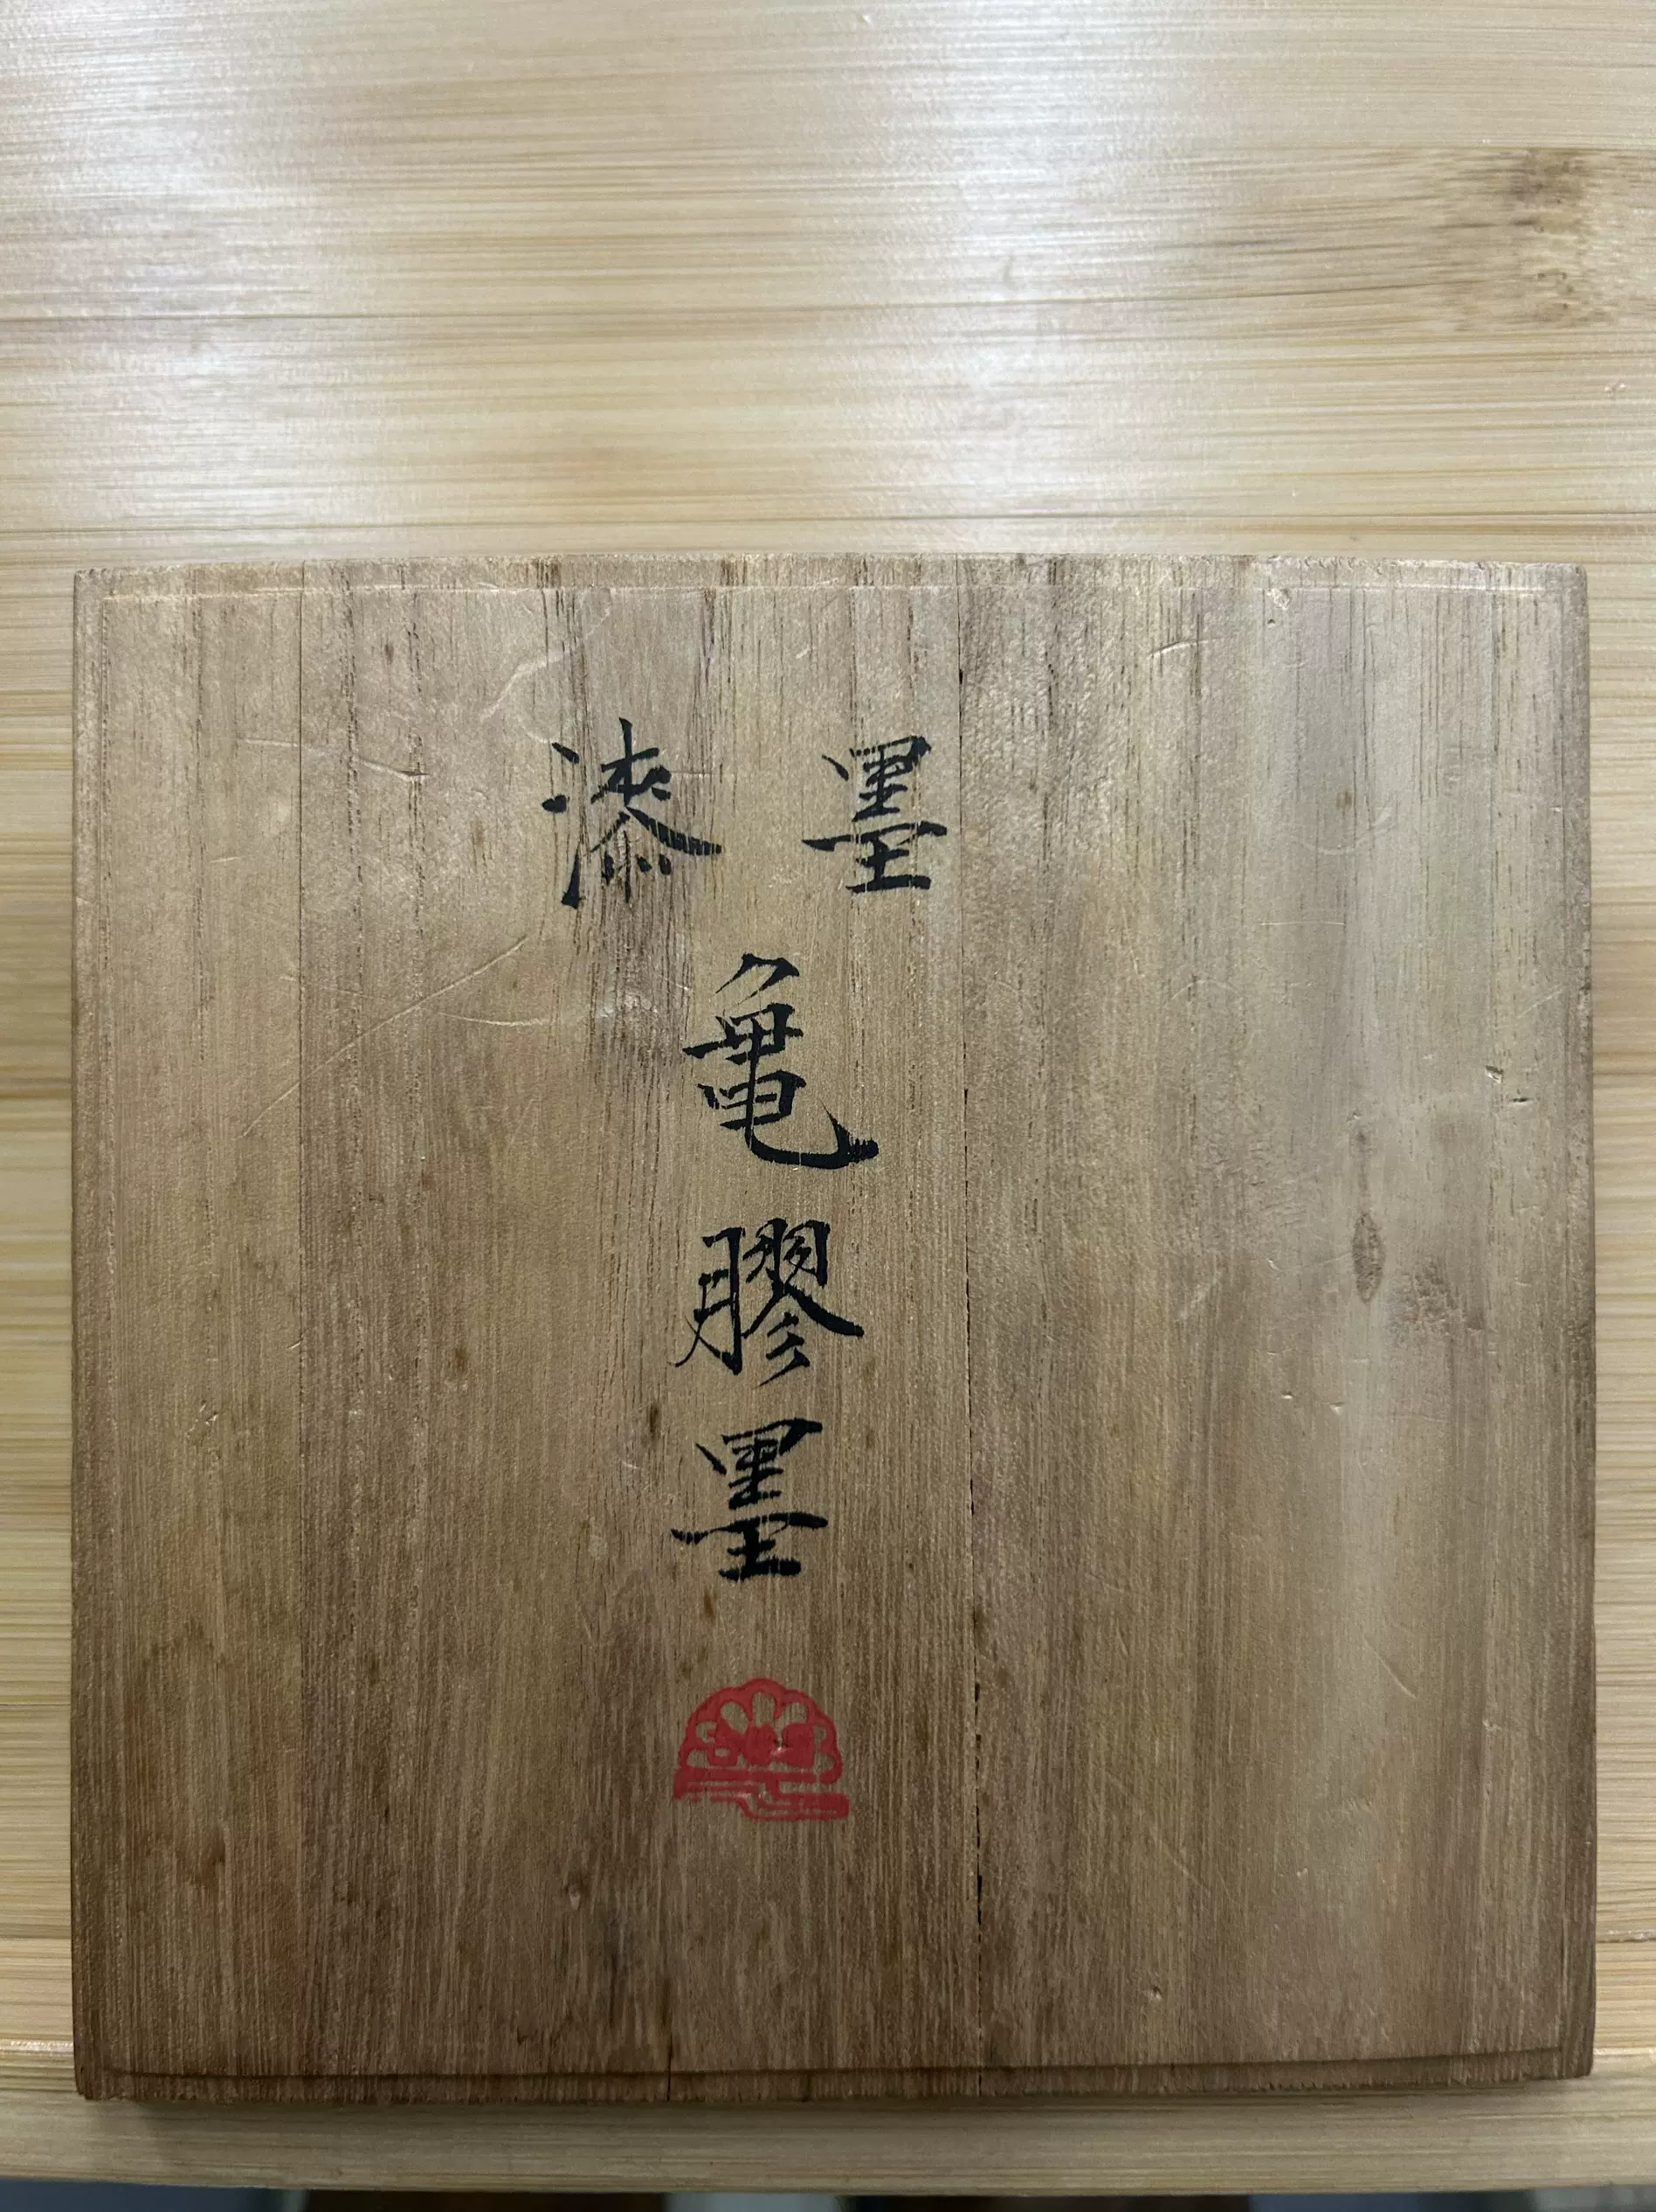 漆墨
亀膠墨